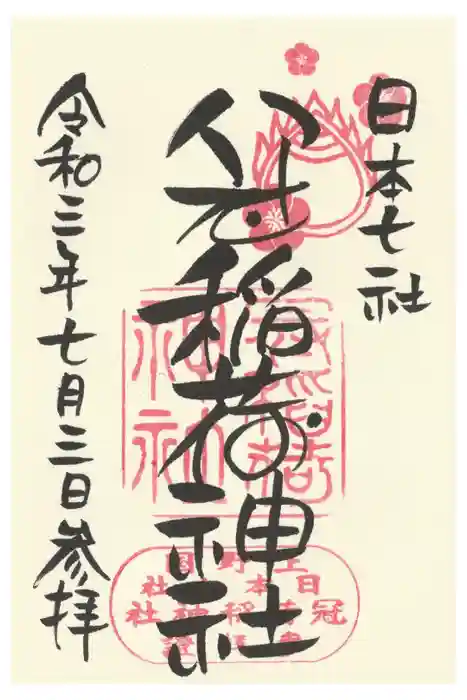 日本七社
冠稲荷神社
令和三年七月三日参拝
上野国
日本七社
冠稲荷神社